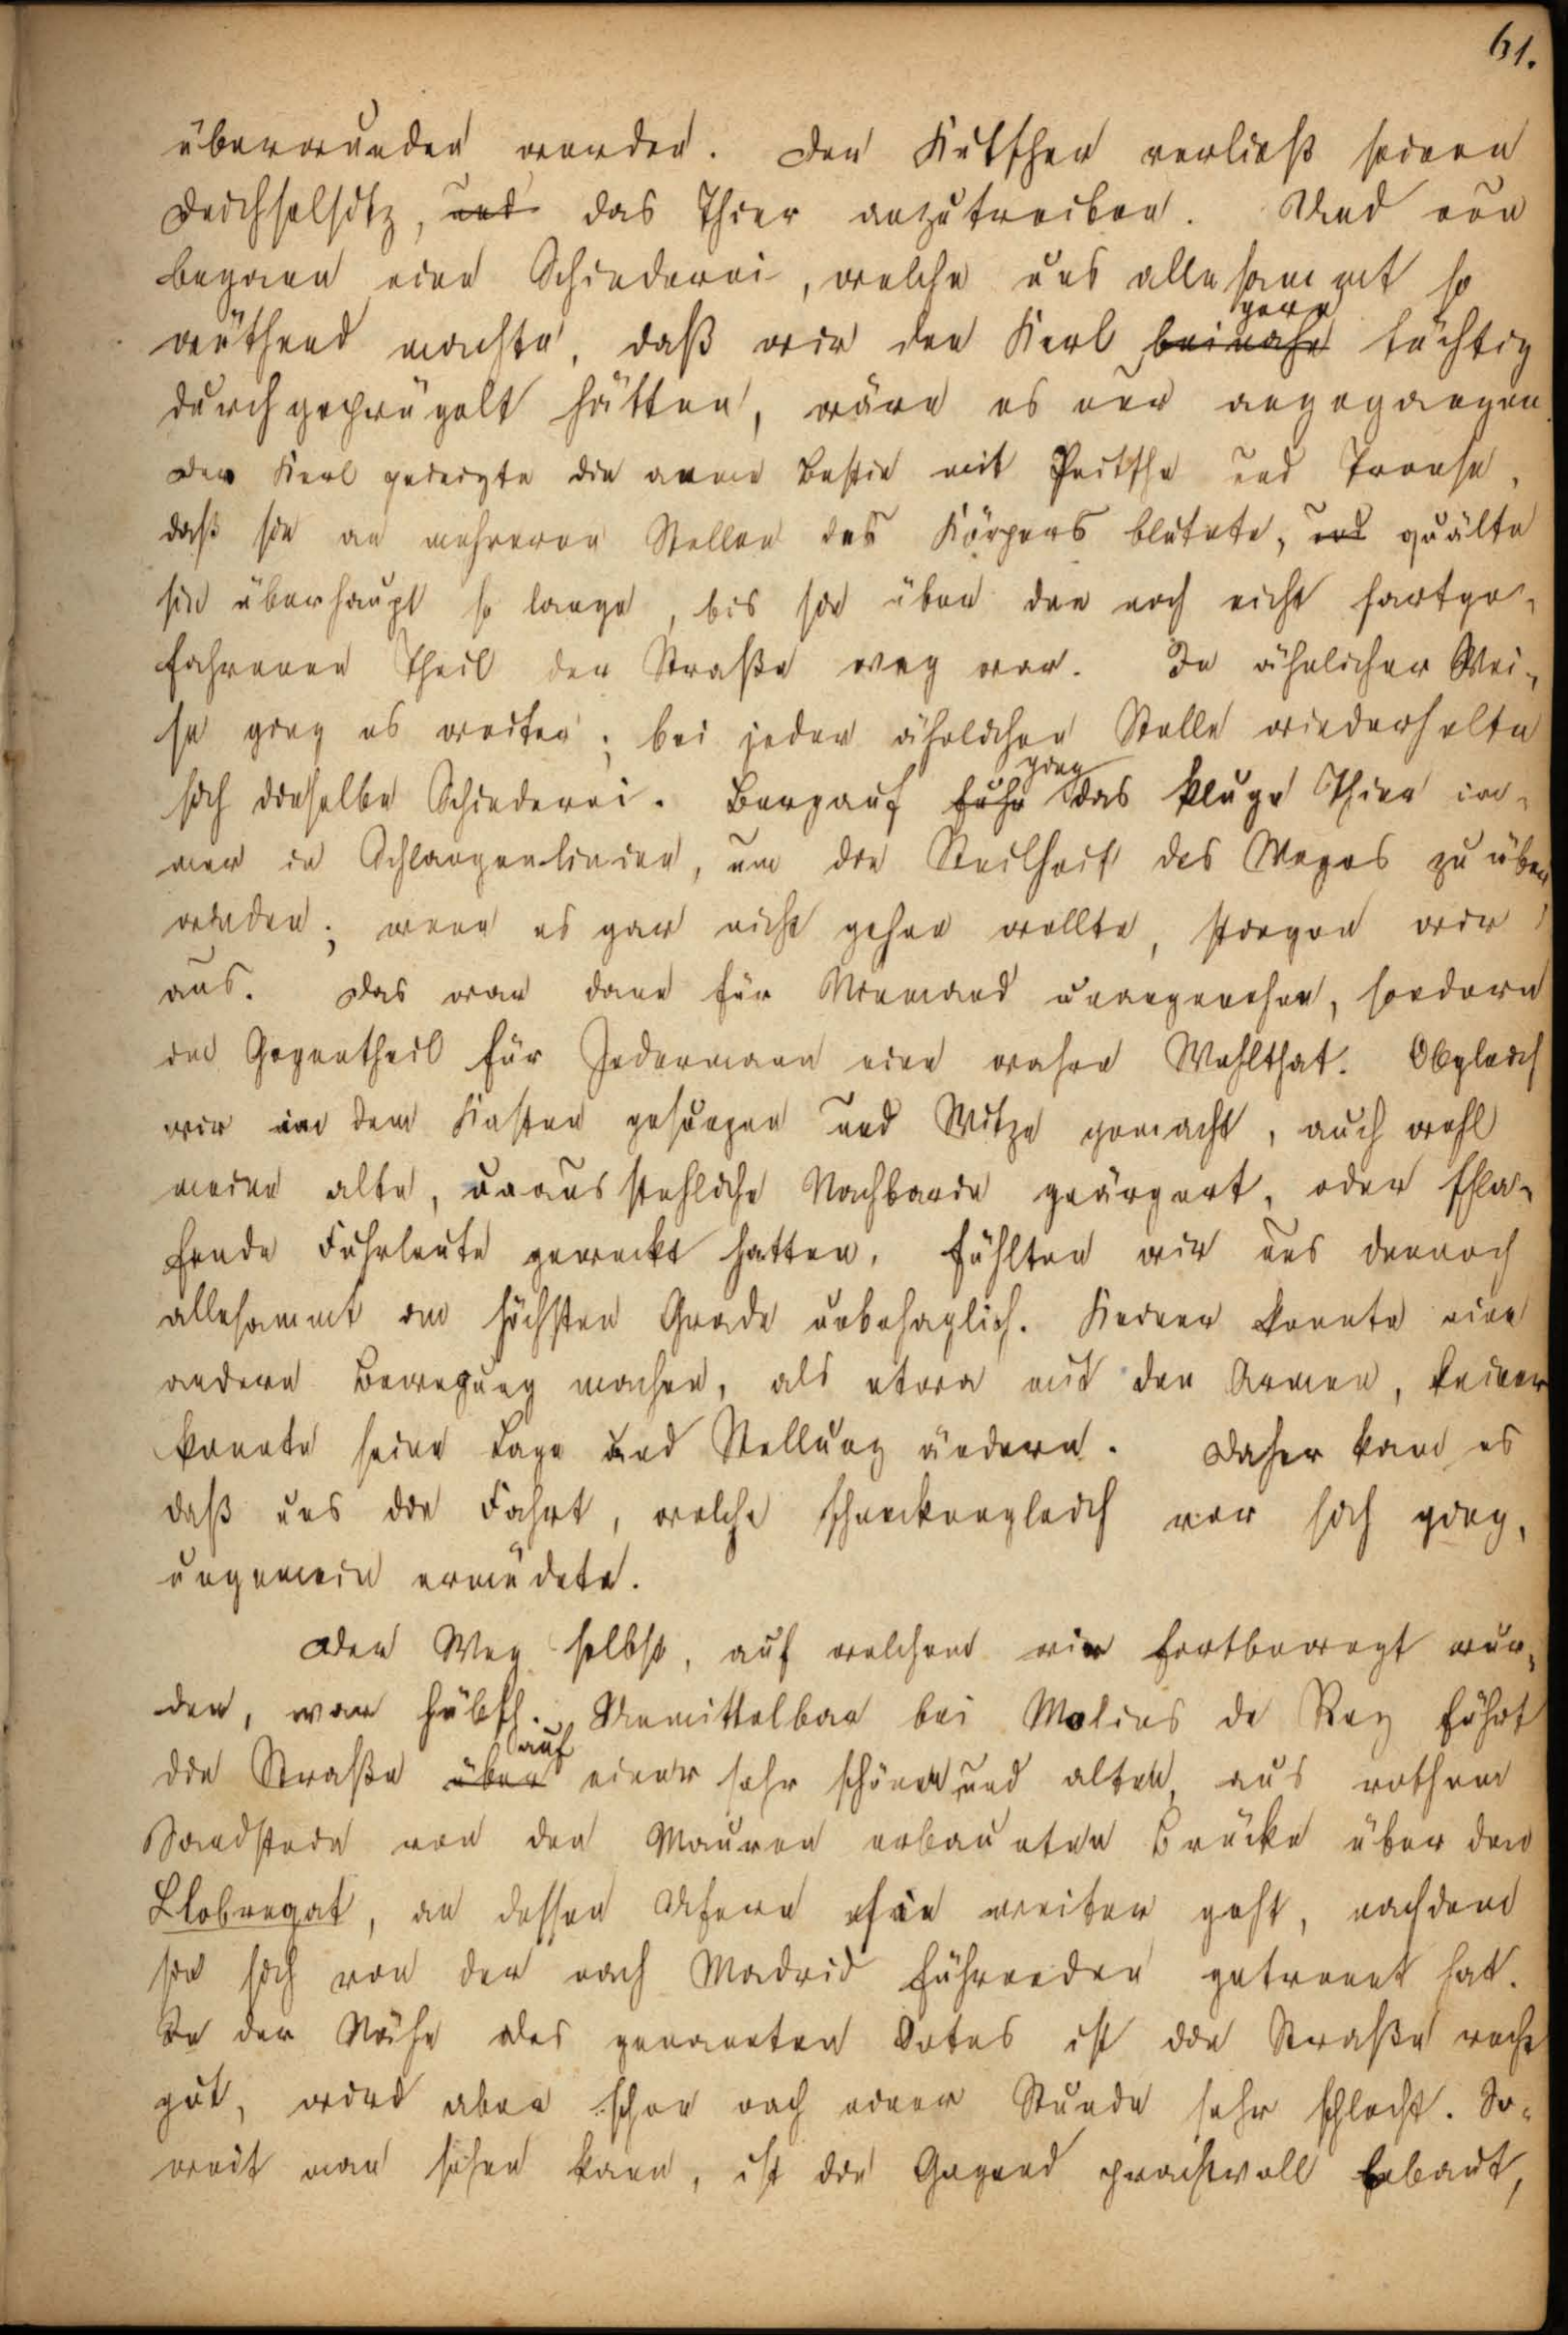 61.
überwunden werden. Der Kutscher verließ seinen
Deichselsitz, und das Thier anzutreiben. Und nun
begann eine Schinderei, welche uns allesammt so
wüthend machte, daß wir den Kerl beinahe gern tüchtig
durchgeprügelt hätten, wäre es nur angegangen.
Der Kerl peinigte die arme Bestie mit Peitsche und Trense,
daß sie an mehreren Stellen des Körpers blutete, und quälte
sie überhaupt so lange, bis sie über den noch nicht hartge-
fahrenen Theil der Straße weg war. In ähnlicher Wei-
se ging es weiter; bei jeder ähnlichen Stelle wiederholte
sich dieselbe Schinderei. Bergauf fuhr ging das kluge Thier im-
mer in Schlangenlinien, um die Steilheit des Weges zu über
winden; wenn es gar nicht gehen wollte, stiegen wir
aus. Das war dann für Niemand unangenehm, sondern
im Gegentheil für Jedermann eine wahre Wohlthat. Obgleich
wir in dem Kasten gesungen und Witze gemacht, auch wohl
meine alte, unausstehliche Nachbarin geärgert, oder schla-
fende Fuhrleute geweckt hatten, fühlten wir uns dennoch
allesammt im höchsten Grade unbehaglich. Keiner konnte eine
andere Bewegung machen, als etwa mit den Armen, keiner
konnte seine Lage und Stellung ändern. Daher kam es
daß uns die Fahrt, welche schneckengleich vor sich ging,
ungemein ermüdete.
Der Weg selbst, auf welchem wir fortbewegt wur-
den, war hübsch. Unmittelbar bei Molins de Rey führt
die Straße über auf einer sehr schönen und alten, aus rothem
Sandstein von den Mauren erbauten Brücke über den
Llobregat, an dessen Ufern sie weiter geht, nachdem
sie sich von der nach Madrid führenden getrennt hat.
In der Nähe des genannten Ortes ist die Straße recht
gut, wird aber schon nach einer Stunde sehr schlecht. So-
weit man sehen kann, ist die Gegend prachtvoll bebaut,